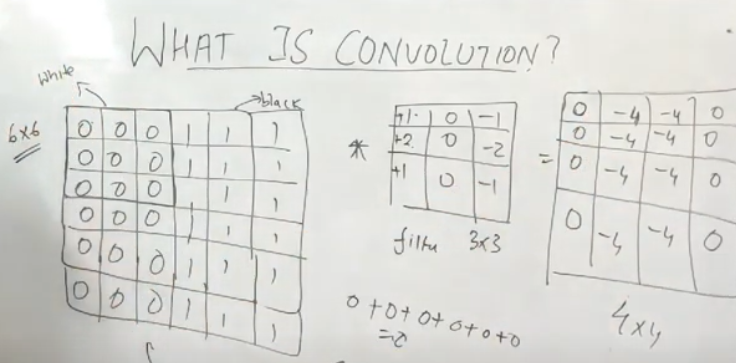 WHAT IS CONVOLUTION?
white
black
6x6
0 0 0 1 1 1
0 0 0 1 1 1
0 0 0 1 1 1
0 0 0 1 1 1
0 0 0 1 1 1
0 0 0 1 1 1
*
+1 0 -1
+2 0 -2
+1 0 -1
filter 3x3
=
0 -4 -4 0
0 -4 -4 0
0 -4 -4 0
0 -4 -4 0
4x4
0+0+0+0+0+0
=0